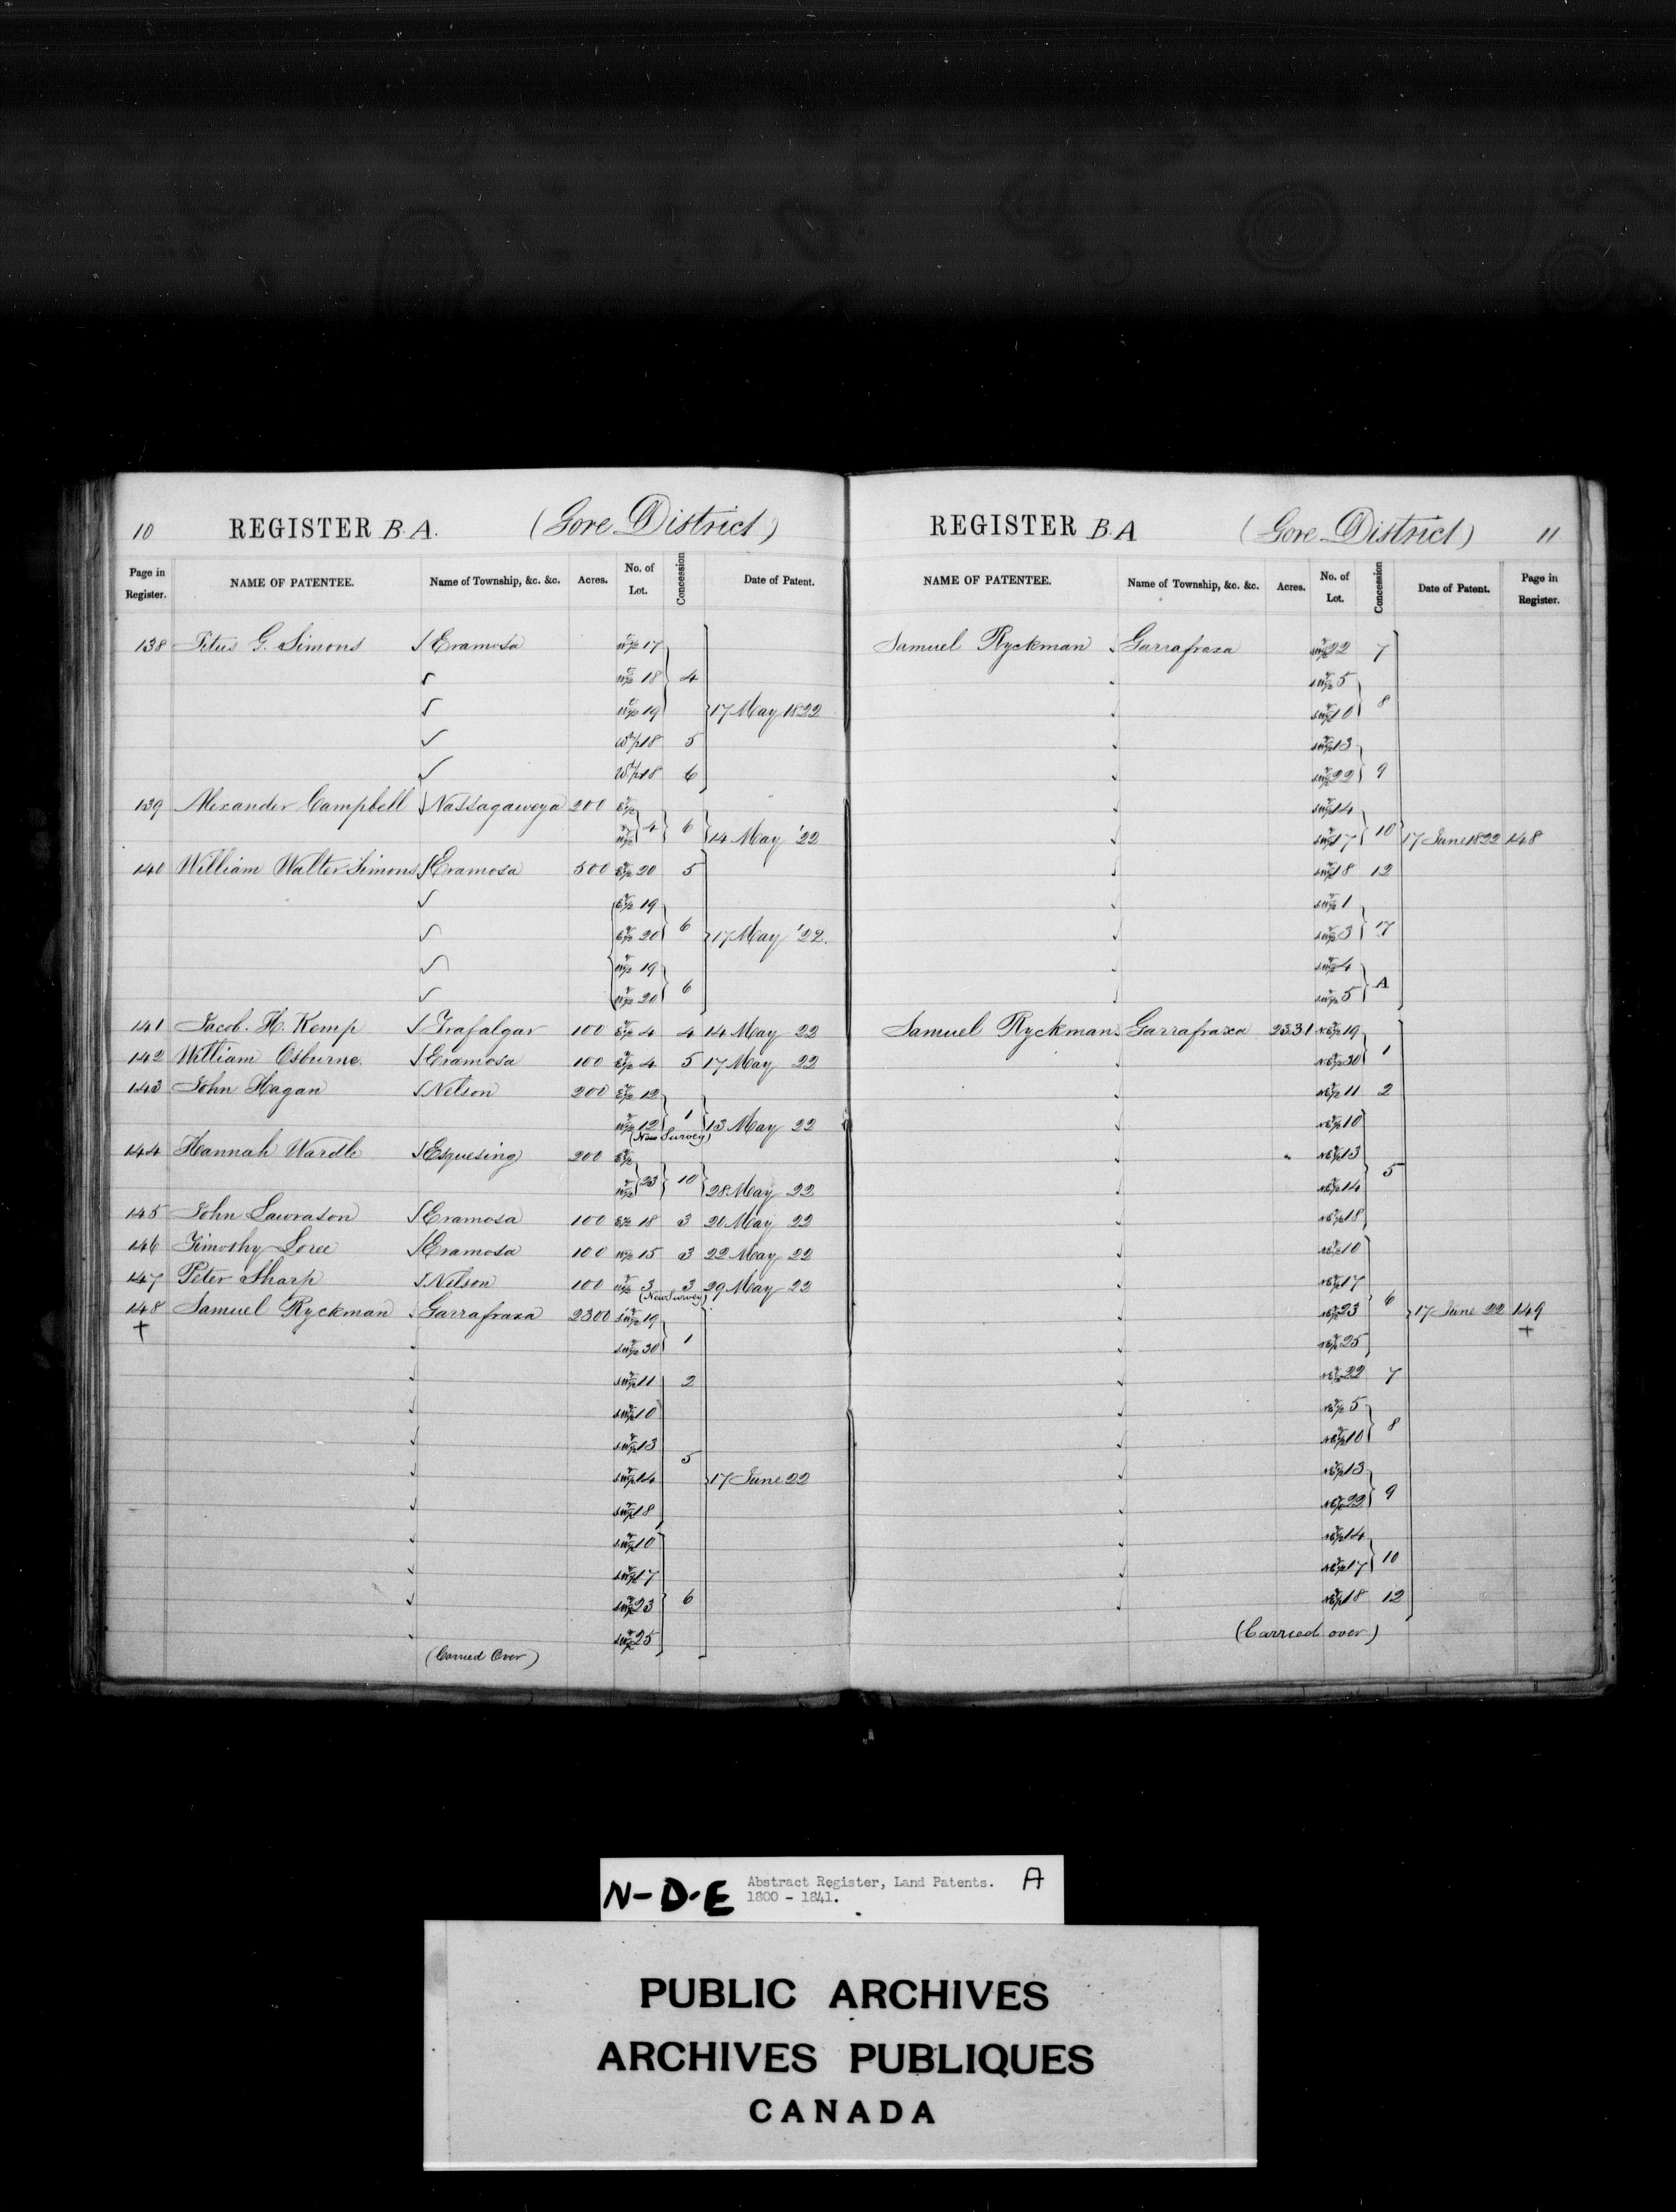 10 REGISTER B. A. (Gore District)
Page in Register. NAME OF PATENTEE. Name of Township, &c. &c. Acres. No. of Lot. Concession Date of Patent.
138 Titus G. Simons Eramosa W½ 17
W½ 18 4
W½ 19 17 May 1822
W½ 18 5
W½ 18 6
139 Alexander Campbell Nassagaweya 200 E½
W½ 4 6 14 May '22
140 William Walter Simons Eramosa 500 E½ 20 5
E½ 19
E½ 20 6 17 May '22.
W½ 19
W½ 20 6
141 Jacob. H. Kemp Trafalgar 100 E½ 4 4 14 May 22
142 William Osburne. Eramosa 100 E½ 4 5 17 May 22
143 John Hagan Nelson 200 E½ 12
W½ 12 1 13 May 22
(New Survey)
144 Hannah Wardle Esquesing 200 E½
W½ 23 10 28 May 22
145 John Lawrason Eramosa 100 E½ 18 3 20 May 22
146 Timothy Loree Eramosa 100 W½ 15 3 22 May 22
147 Peter Sharp Nelson 100 W½ 3 3 29 May 22
(New Survey)
148 Samuel Ryckman Garrafraxa 2300 SW½ 19
+ SW½ 30 1
SW½ 11 2
SW½ 10
SW½ 13
5
SW½ 14 17 June 22
SW½ 18
SW½ 10
SW½ 17
SW½ 23 6
SW½ 25
(Carried Over)
REGISTER B. A (Gore District) 11
NAME OF PATENTEE. Name of Township, &c. &c. Acres. No. of Lot. Concession Date of Patent. Page in Register.
Samuel Ryckman Garrafraxa SW½ 22 7
SW½ 5
SW½ 10 8
SW½ 13
SW½ 22 9
SW½ 14
SW½ 17 10 17 June 1822 148
SW½ 18 12
SW½ 1
SW½ 3 17
SW½ 4
SW½ 5 A
Samuel Ryckman Garrafraxa 2331 NE½ 19
NE½ 30 1
NE½ 11 2
NE½ 10
NE½ 13
5
NE½ 14
NE½ 18
NE½ 10
NE½ 17
6
NE½ 23 17 June 22 149
NE½ 25 +
NE½ 22 7
NE½ 5
NE½ 10 8
NE½ 13
NE½ 22 9
NE½ 14
NE½ 17 10
NE½ 18 12
(Carried over)
N-D-E Abstract Register, Land Patents. A
1800 - 1841.
PUBLIC ARCHIVES
ARCHIVES PUBLIQUES
CANADA